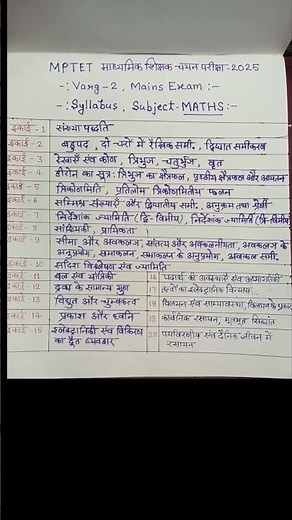 MPTET माध्यमिक शिक्षक चयन परीक्षा-2025
-: Varg-2, Mains Exam :-
-: Syllabus, Subject-MATHS :-
इकाई-1 संख्या पद्धति
इकाई-2 बहुपद, दो चरों में रैखिक समी., द्विघात समीकरण
इकाई-3 रेखाएँ एवं कोण, त्रिभुज, चतुर्भुज, वृत्त
इकाई-4 हीरोन का सूत्र: त्रिभुज का क्षेत्रफल, पृष्ठीय क्षेत्रफल और आयतन
इकाई-5 त्रिकोणमिति, प्रतिलोम त्रिकोणमितीय फलन
इकाई-6 सम्मिश्र संख्याएँ और द्विघातीय समी., अनुक्रम तथा श्रेणी
इकाई-7 निर्देशांक ज्यामिति (द्वि-विमीय), निर्देशांक ज्यामिति (त्रि-विमीय)
इकाई-8 सांख्यिकी, प्रायिकता
इकाई-9 सीमा और अवकलज, सांतत्य और अवकलनीयता, अवकलज के
अनुप्रयोग, समाकलन, समाकलन के अनुप्रयोग, अवकल समी.
इकाई-10 सदिश विश्लेषण एवं ज्यामिति
इकाई-11 बल एवं यांत्रिकी
इकाई-12 द्रव्य के सामान्य गुण
इकाई-13 विद्युत और चुम्बकत्व
इकाई-14 प्रकाश और ध्वनि
इकाई-15 इलेक्ट्रॉनिकी एवं विकिरण
का द्वैत व्यवहार
16 पदार्थ की अवस्थाएँ एवं
17 तत्वों का इलेक्ट्रॉनिक विन्यास
18 विलयन एवं साम्यावस्था, विलयन के प्रकार
19 कार्बनिक रसायन, मूलभूत सिद्धांत
20 पर्यावरणीय एवं दैनिक जीवन में
रसायन